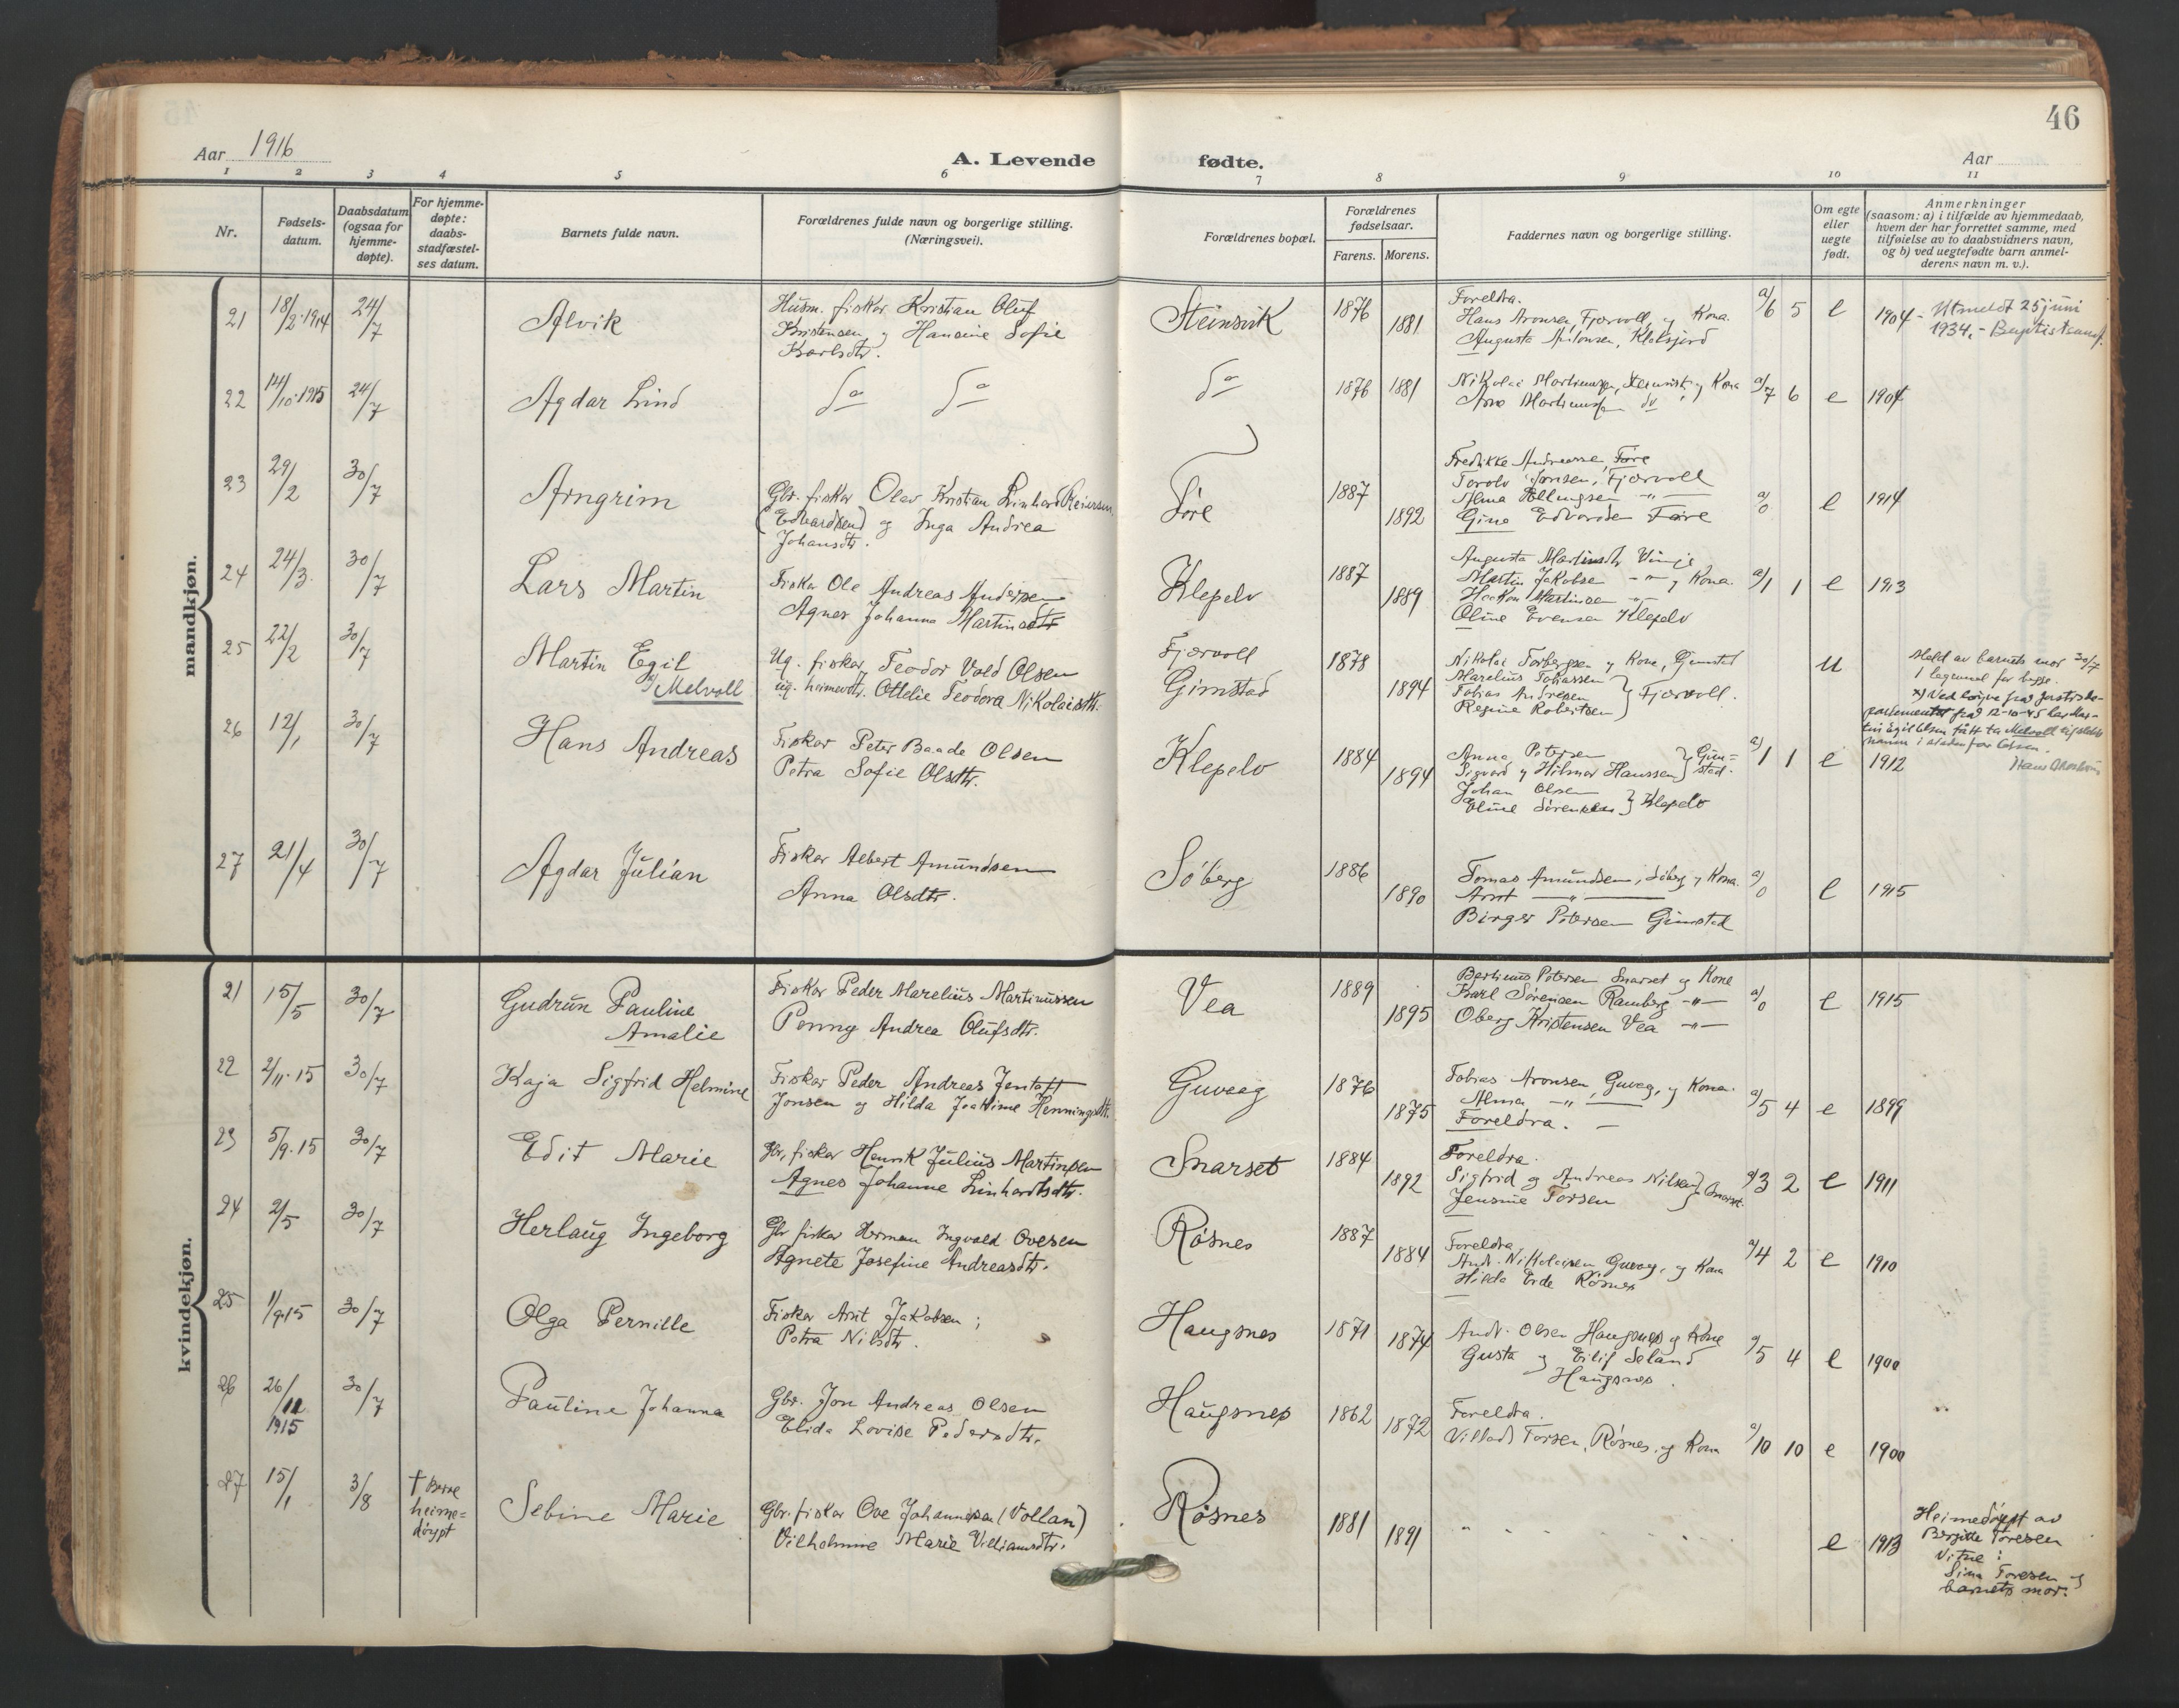 46
Aar 1916
A. Levende
fødte.
Aar
1 2 3 4 5 6 7 8 9 10 11
Nr.
Fødsels-
datum.
Daabsdatum
(ogsaa for
hjemme-
døpte).
For hjemme-
døpte:
daabs-
stadfæstel-
ses datum.
Barnets fulde navn.
Forældrenes fulde navn og borgerlige stilling.
(Næringsvei).
Forældrenes bopæl.
Forældrenes
fødselsaar.
Farens. Morens.
Faddernes navn og borgerlige stilling.
Om egte
eller
uegte
født.
Anmerkninger
(saasom: a) i tilfælde av hjemmedaab,
hvem der har forrettet samme, med
tilføielse av to daabsvidners navn,
og b) ved uegtefødte barn anmel-
derens navn m. v.).
mandkjøn.
21 18/2·1914 24/7 Alvik
Husm. fisker Kristian Oluf
Kristensen og Hansine Sofie
Karlsdtr.
Steinsvik 1876 1881
Foreldra.
Hans Aronsen, Fjærvoll, og Kona.
Augusta Antonsen, Kleksjord
a/6 5 e 1904 - Utmeldt 25 juni
1934, - Baptistsamf.
22 14/10·1915 24/7 Agdar Lind
Do Do
Do 1876 1881
Nikolai Martinussen, Steinsvik, og Kona
Arne Martinussen do
a/7 6 e 1904
23 29/2 30/7 Arngrim
Gbr. fisker Olav Kristian Linhard Reiersen
(Edvardsen) og Inga Andrea
Johansdtr.
Føre 1887 1892
Fredrikke Andreassen, Føre
Torolv Jansen, Fjærvoll
Alma Ellingsen -"-
Gina Edvardsen Føre
a/0 e 1914
24 24/3. 30/7 Lars Martin
Fisker Ole Andreas Andersen
Agnes Johanna Martinsdtr
Klepelv 1887 1889
Augusta Martinsdtr Vinje
Martin Jakobsen -"- og Kona.
Haakon Martinsen -"-
Oline Evensen Klepelv
a/1 1 e 1913
25 22/2 30/7 Martin Egil
x) Melvoll
Ug. fisker Teodor Vold Olsen
ug. heimevdtr. Ottelie Teodora Nikolaisdtr.
Fjærvoll
Gimstad
1878 1894
Nikolai Torbergsen og Kona, Gimstad
Marelius Tobiassen
Tobias Andresen
Regine Robertsen } Fjærvoll.
u
Meld av barnets mor 30/7
1 legemel for begge.
x) Ved løyve frå Justisde-
partementet frå 12-10-45 har Mar-
tin Egil Olsen fått ta Melvoll til slekts
namn i staden for Olsen.
26 12/1 30/7 Hans Andreas
Fisker Peter Baade Olsen
Petra Sofie Olsdtr.
Klepelv 1884 1894
Anna Petersen
Sigvard og Hilmar Hanssen } Gim=
stad.
Johan Olsen
Eline Sørensen } Klepelv
a/1 1 e 1912
27 21/4 30/7 Agdar Julian
Fisker Albert Amundsen
Anna Olsdtr.
Søberg 1886 1890
Tomas Amundsen, Søberg og Kona.
Arnt -"-
Birger Petersen Gimstad
a/0 e 1915
kvindekjøn.
21 15/5 30/7 Gudrun Pauline
Amalie
Fisker Peder Marelius Martinussen
Penny Andrea Olufsdtr.
Vea 1889 1895
Bertinus Petersen Snarset og Kone
Karl Sørensen Ramberg -"-
Oberg Kristensen Vea -"-
a/0 e 1915
22 2/11·15 30/7 Kaja Sigfrid Helmine
Fisker Peder Andreas Jentoft
Jonsen og Hilda Joakime Henningsdtr.
Guvaag 1876 1875
Tobias Aronsen, Guvag, og Kona.
Alma -"-
Foreldra. -
a/5 4 e 1899
23 5/9·15 30/7 Edit Marie
Gbr, fisker Henrik Julius Martinsen
Agnes Johanne Linhartsdtr.
Snarset 1884 1892
Foreldra.
Sigfrid og Andreas Nilsen
Jensine Torsen } Snarset.
a/3 2 e 1911
24 2/5 30/7 Herlaug Ingeborg
Gbr fisker Herman Ingvald Ovesen
Agnete Josefine Andreasdtr.
Røsnes 1887 1884
Foreldra
Andr. Nikolaisen Guvag, og Kona
Hilda Eide Røsnes
a/4 2 e 1910
25 1/9.15 30/7 Olga Pernille
Fisker Arnt Jakobsen;
Petra Nilsdtr.
Haugsnes 1871 1874
Andr. Olsen Haugsnes og Kone
Gusta og Eilif Seland
Haugsnes.
a/5 4 e 1900
26 26/11 1915 30/7 Pauline Johanna
Gbr. Jon Andreas Olsen
Elida Lovise Pedersdtr.
Haugsnes 1862 1872
Foreldra.
Villads Torsen, Røsnes, og Kona
a/10 10 e 1900
27 15/1 3/8 † Berre
heime=
døypt
Sebine Marie
Gbr. fisker Ove Johannesen (Vollan)
Vilhelmine Marie Villiamsdtr.
Røsnes 1881 1891
e 1913
Heimedøypt av
Bergitte Toresen
Vitne:
Sina Toresen og
barnets mor.